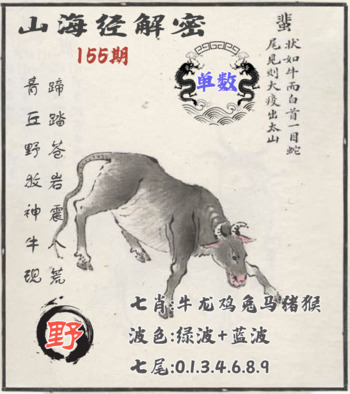 山海经解密
155期
单数
蜚
状如牛而白首一目蛇
尾见则大疫出太山
蹄踏苍岩震八荒
青丘野牧神牛现
野
七肖:牛龙鸡兔马猪猴
波色:绿波+蓝波
七尾:0.1.3.4.6.8.9